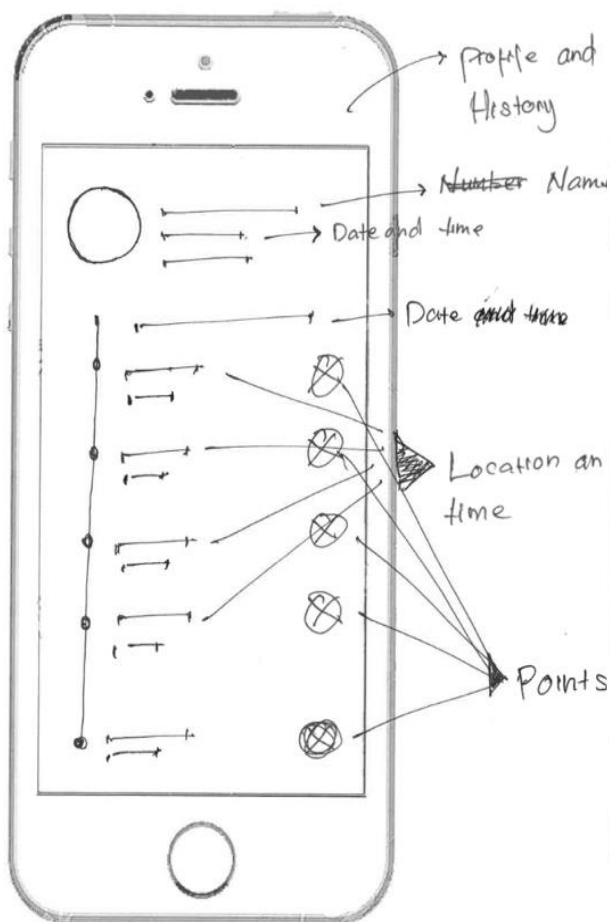 Profile and
History
Number Name
Date and time
Date and time
Location an
time
Points